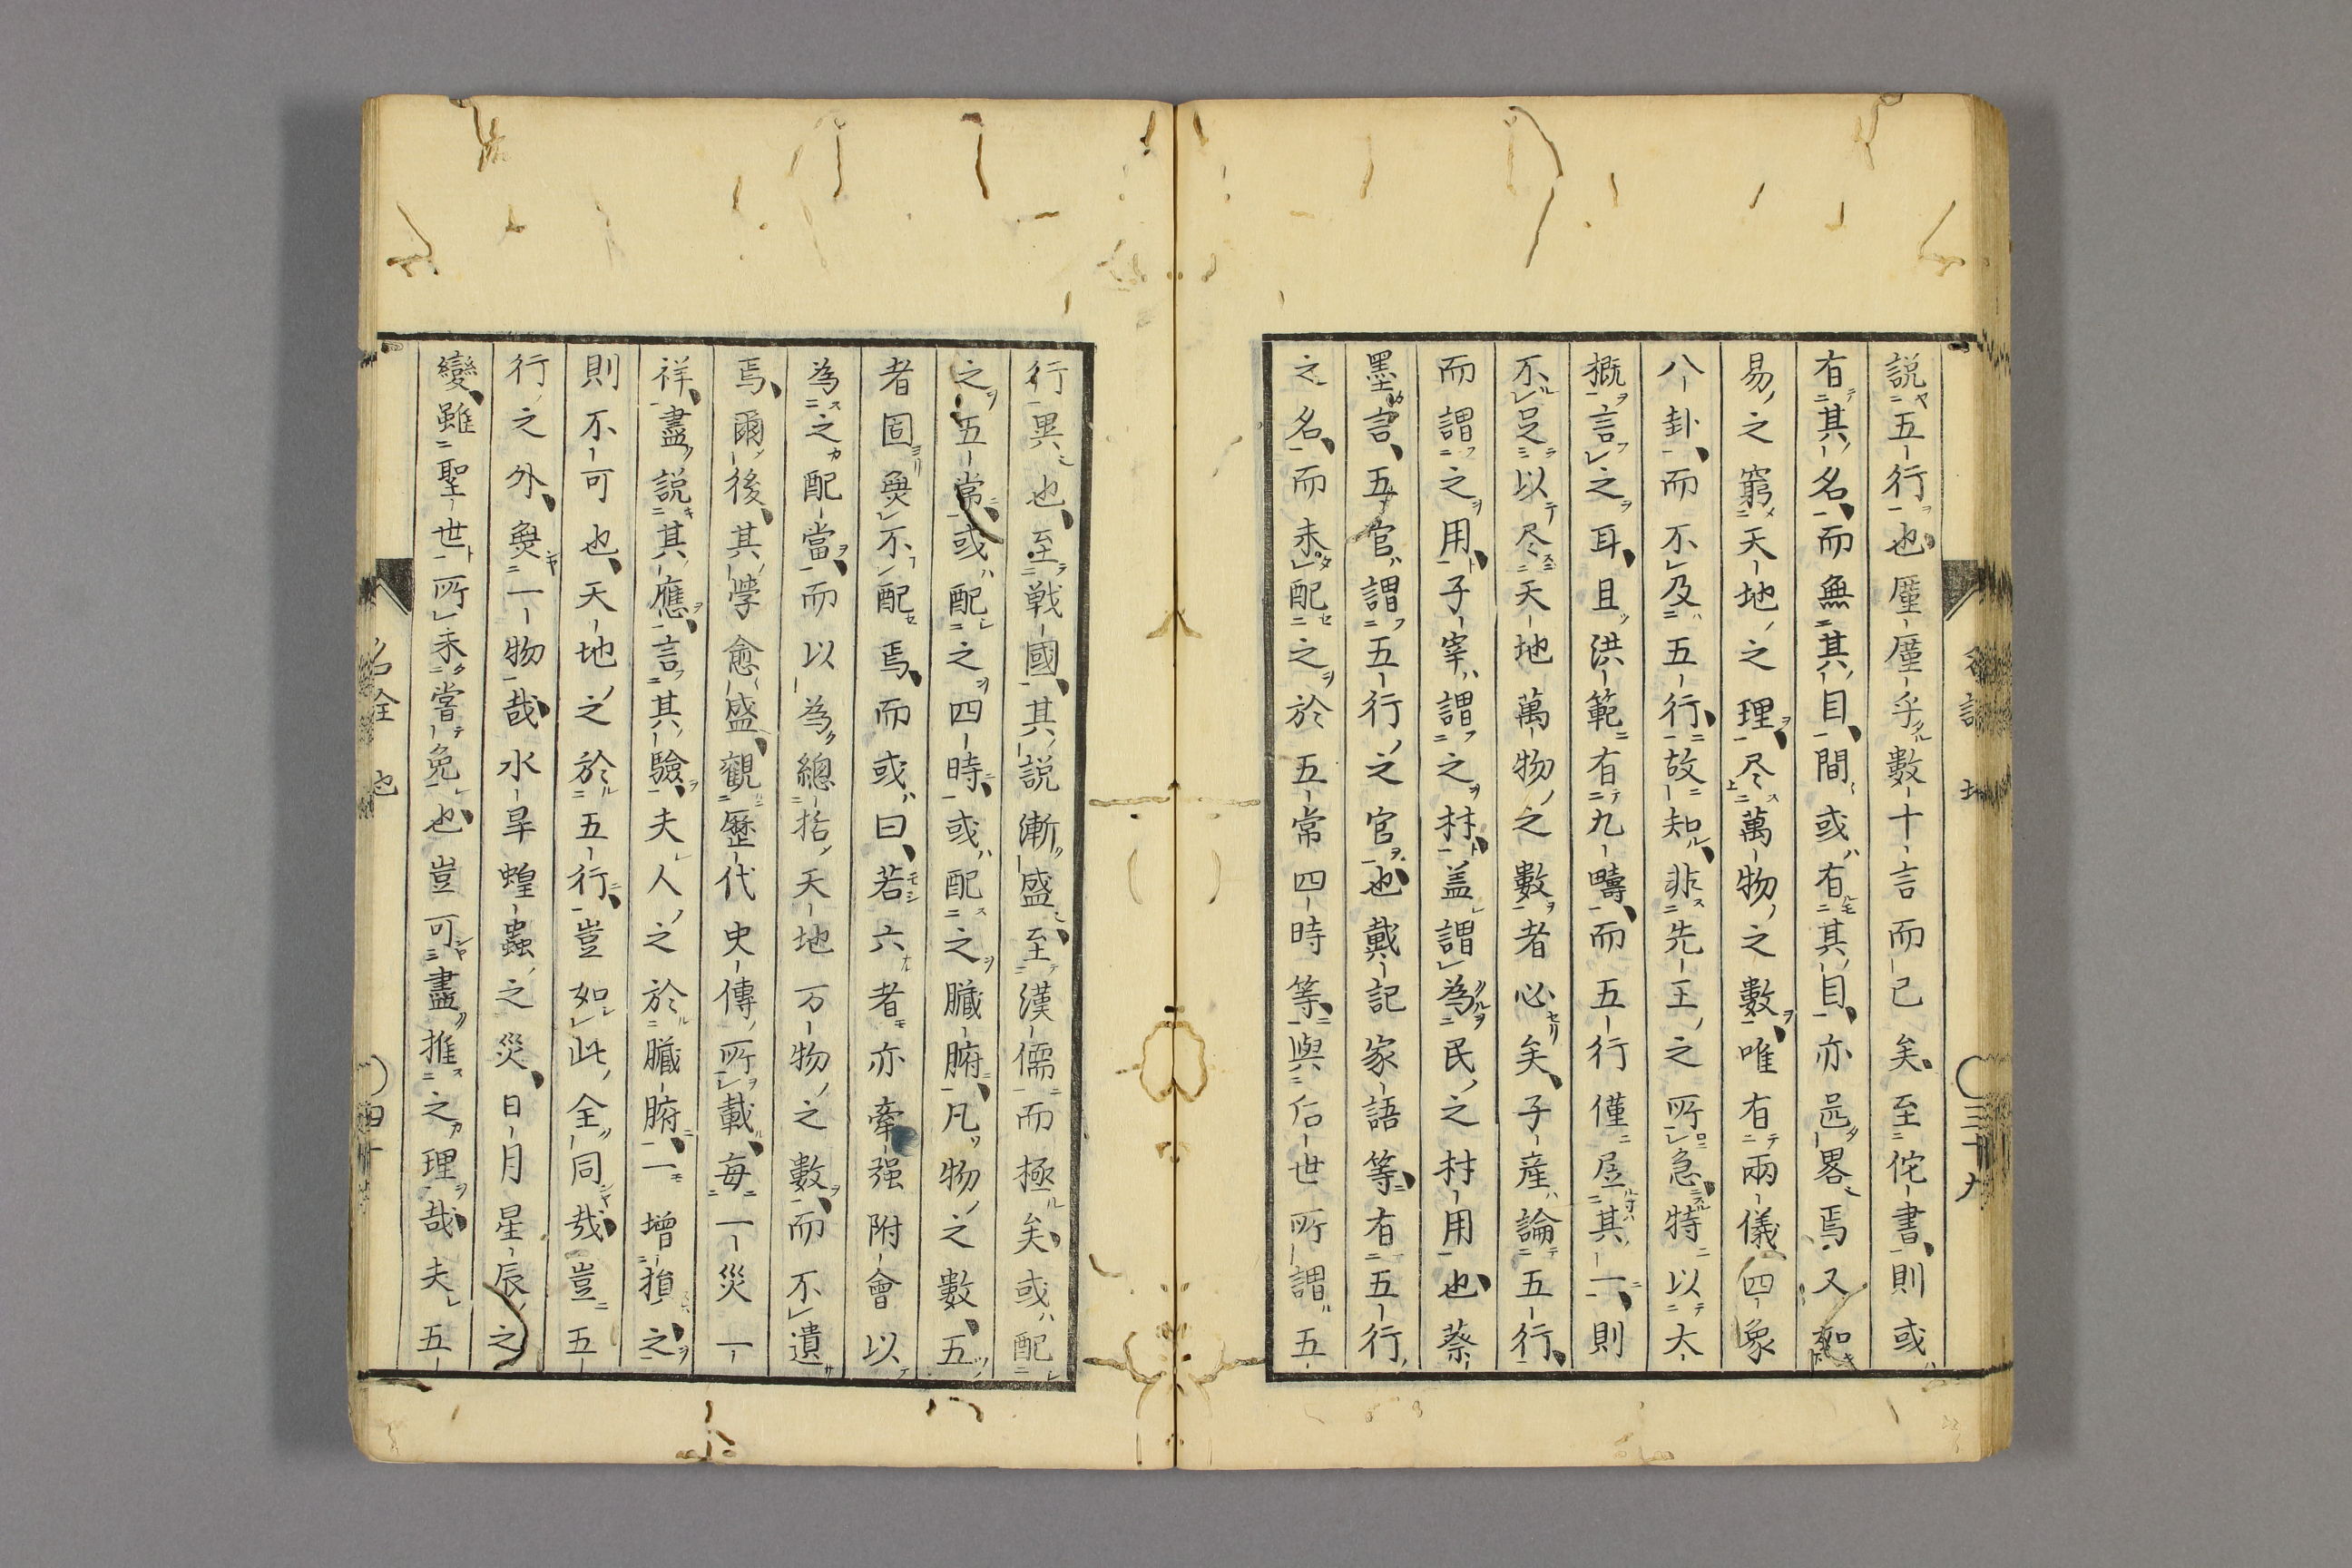 説五行也厪厪乎數十言而已矣至佗書則或
有其名而無其目間或有其目亦最畧焉又如
易之窮天地之理尽萬物之數唯有兩儀四象
八卦而不及五行故知非先王之所急特以大
概言之耳且洪範有九疇而五行僅居其一則
不足以尽天地萬物之數者必矣子產論五行
而謂之用子宰謂之材盖謂為民之材用也蔡
墨言五官謂五行之官也戴記家語等有五行
之名而未配之於五常四時等與后世所謂五
行異也至戰國其説漸盛至漢儒而極矣或配
之五常或配之四時或配之臟腑凡物之數五
者固無不配焉而或曰若六者亦牽强附會以
為之配當而以為總括天地万物之數而不遺
焉爾後其學愈盛觀歷代史傳所載每一災一
祥盡説其應言其驗夫人之於臟腑一增損之
則不可也天地之於五行豈如此全同哉豈五
行之外無一物哉水旱蝗蟲之災日月星辰之
變雖聖世所未嘗免也豈可盡推之理哉夫五
三十九
四十